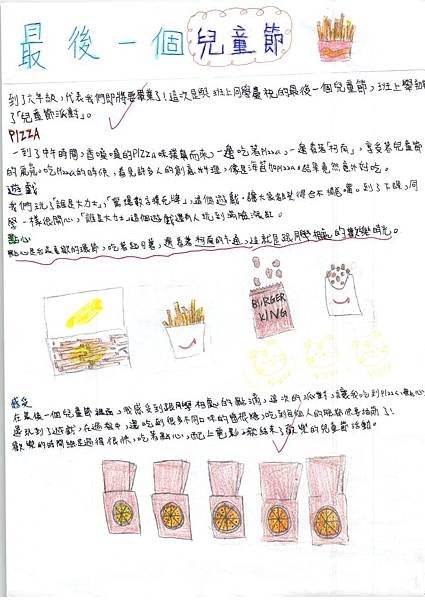 最後一個兒童節
到了六年級,代表我們即將要畢業了!這次是與班上同學慶祝的最後一個兒童節,班上舉辦
了「兒童節派對」。
PIZZA
一到了中午時間,香噴噴的PIZZA味撲鼻而來,一邊吃著PIZZA,一邊看著「柯南」,享受著兒童節
的氣氛。吃Pizza的時候,看見許多人的創意料理,像是海苔加Pizza起來竟然意外好吃。
遊戲
我們玩了「誰是大力士」、「驚爆數字擴充牌」,這個遊戲,讓大家都笑得合不攏嘴。到了下課,同
學一樣很開心,「誰是大力士」這個遊戲還有人玩到滿臉漲紅。
點心
點心是我最喜歡的環節,吃著,邊看著柯南的卡通,這就是跟同學相處的歡樂時光。
BURGER
KING
感受
在最後一個兒童節裡面,我感受到跟同學相處的點滴,這次的派對,讓我吃到Pizza、點心,
還玩到了遊戲,在過程中,還吃到很多不同口味的
歡樂的時間總是過得很快,吃著點心,配上電影,就結束了歡樂的兒童節活動。